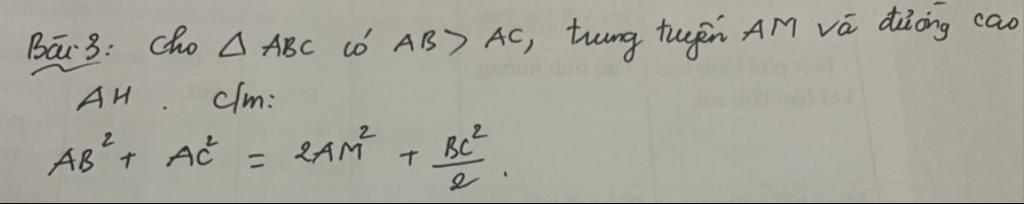 Bài 3: Cho △ ABC có AB > AC, trung tuyến AM và đường cao
AH. c/m:
AB² + AC² = 2AM² + BC²/2.